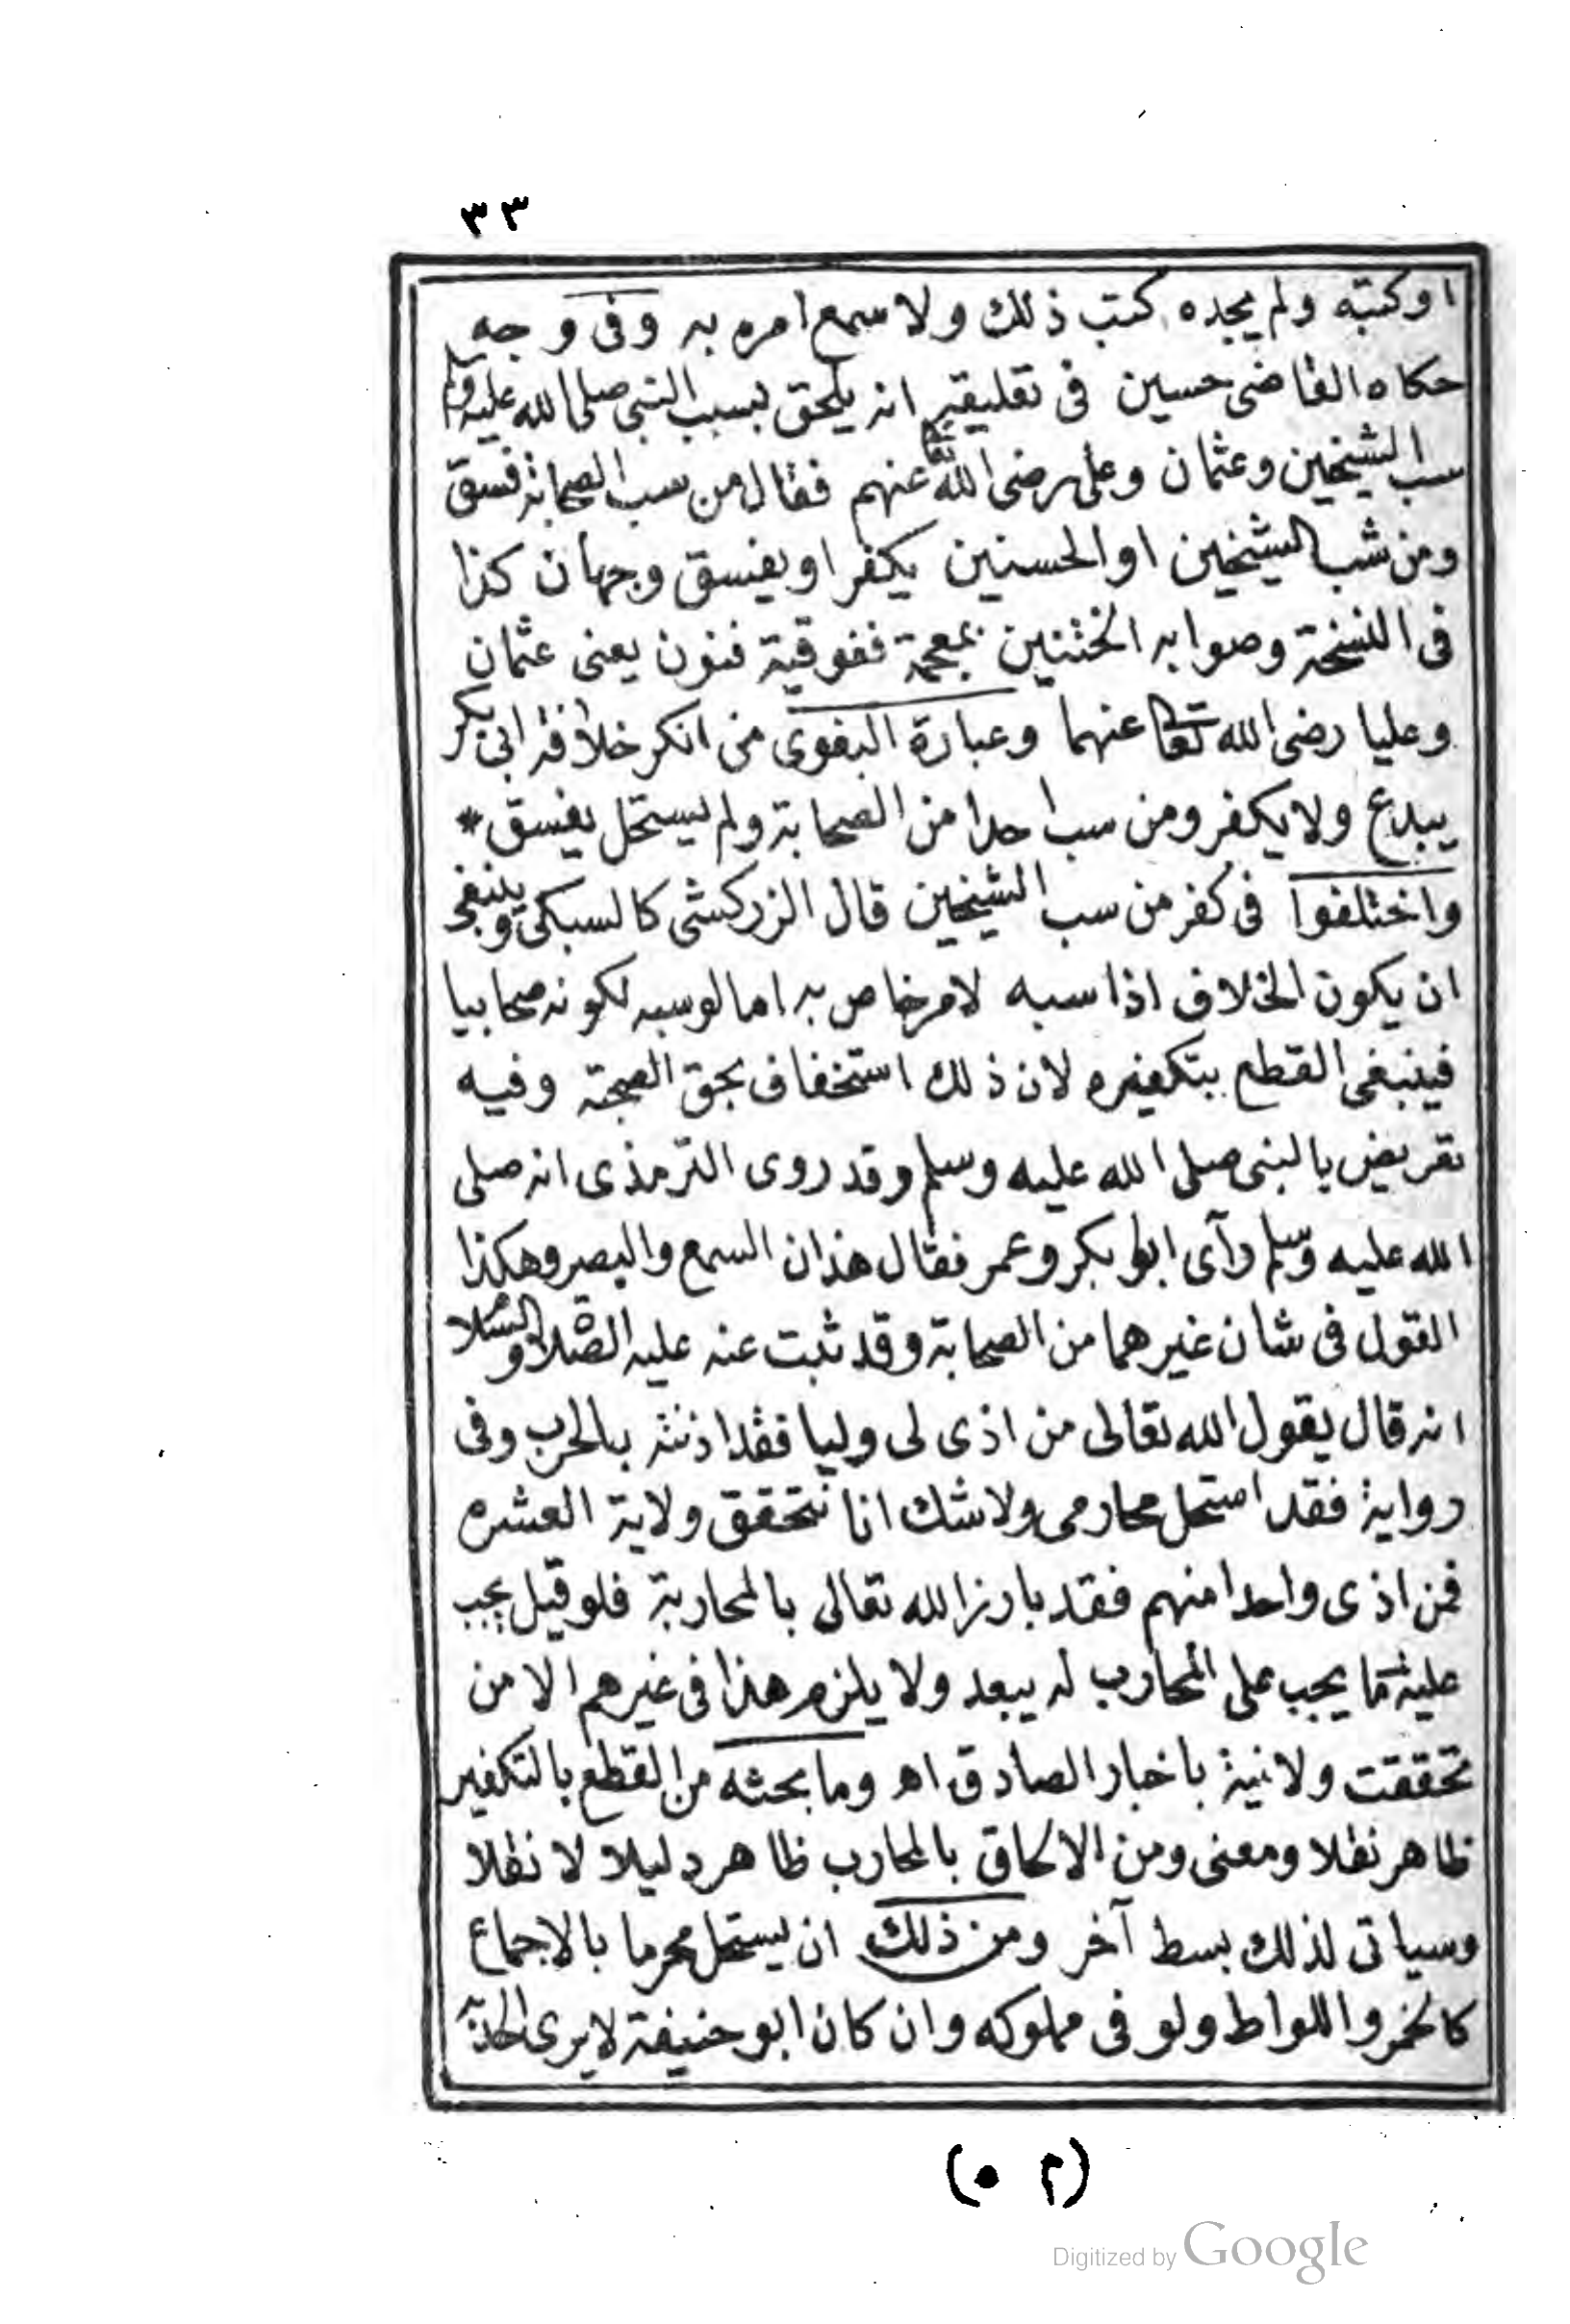 ٣٣
او كتبه ولم يجده كتب ذلك ولا سمع امره به وفى وجه
حكاه القاضى حسين فى تعليقه انه يلحق بسب النبى صلى الله عليه وسلم
سب الشيخين وعثمان وعلى رضى الله تعا عنهم فقال من سب الصحابة فسق
ومن سب الشيخين او الحسنين يكفر او يفسق وجهان كذا
فى النسخة وصوابه الختنين بمعجمة ففوقية فنون يعنى عثمان
وعليا رضى الله تعا عنهما وعبارة البغوى من انكر خلافة ابى بكر
يبدع ولا يكفر ومن سب احدا من الصحابة ولم يستحل يفسق *
واختلفوا فى كفر من سب الشيخين قال الزركشى كالسبكى وينبغى
ان يكون الخلاف اذا سبه لامر خاص به اما لو سبه لكونه صحابيا
فينبغى القطع بتكفيره لان ذلك استخفاف بحق الصحبة وفيه
تعريض بالنبى صلى الله عليه وسلم وقد روى الترمذى انه صلى
الله عليه وسلم رآى ابو بكر وعمر فقال هذان السمع والبصر وهكذا
القول فى شان غيرهما من الصحابة وقد ثبت عنه عليه الصلاة والسلام
انه قال يقول الله تعالى من اذى لى وليا فقد اذنته بالحرب وفى
رواية فقد استحل محارمى ولا شك انا نتحقق ولاية العشره
فمن اذى واحدا منهم فقد بارز الله تعالى بالمحاربة فلو قيل يجب
عليه ما يجب على المحارب له يبعد ولا يلزم هذا فى غيرهم الا من
تحققت ولايته باخبار الصادق اه وما بحثه من القطع بالتكفير
ظاهر نقلا ومعنى ومن الالحاق بالمحارب ظاهر دليلا لا نقلا
وسياتى لذلك بسط آخر ومن ذلك ان يستحل محرما بالاجماع
كالخمر واللواط ولو فى مملوكه وان كان ابو حنيفة لا يرى الحد
(٥ م)
Digitized by Google